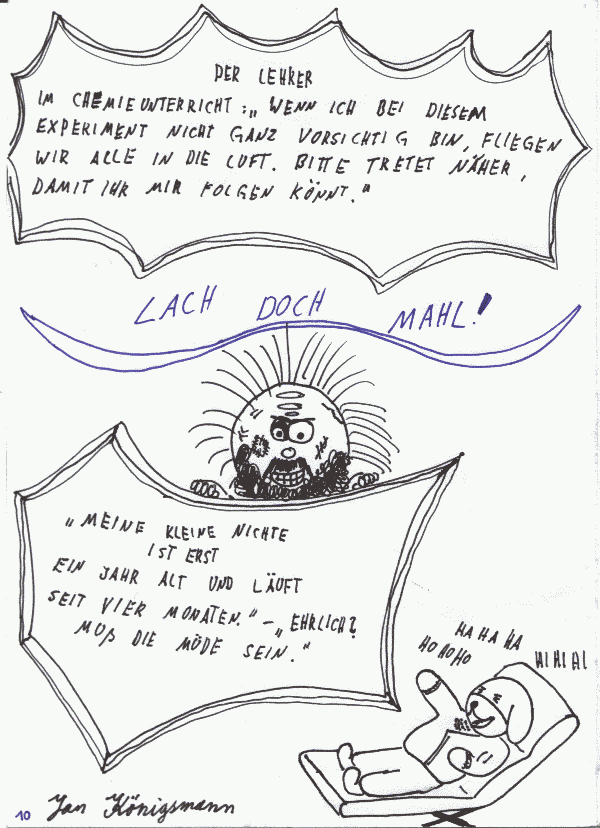 DER LEHRER
IM CHEMIEUNTERRICHT: „WENN ICH BEI DIESEM
EXPERIMENT NICHT GANZ VORSICHTIG BIN, FLIEGEN
WIR ALLE IN DIE LUFT. BITTE TRETET NÄHER,
DAMIT IHR MIR FOLGEN KÖNNT."
LACH DOCH MAHL!
„MEINE KLEINE NICHTE
IST ERST
EIN JAHR ALT UND LÄUFT
SEIT VIER MONATEN." – „EHRLICH?
MUß DIE MÜDE SEIN."
HA HA HA
HO HO HO
HI HI HI
10 Jan Königsmann